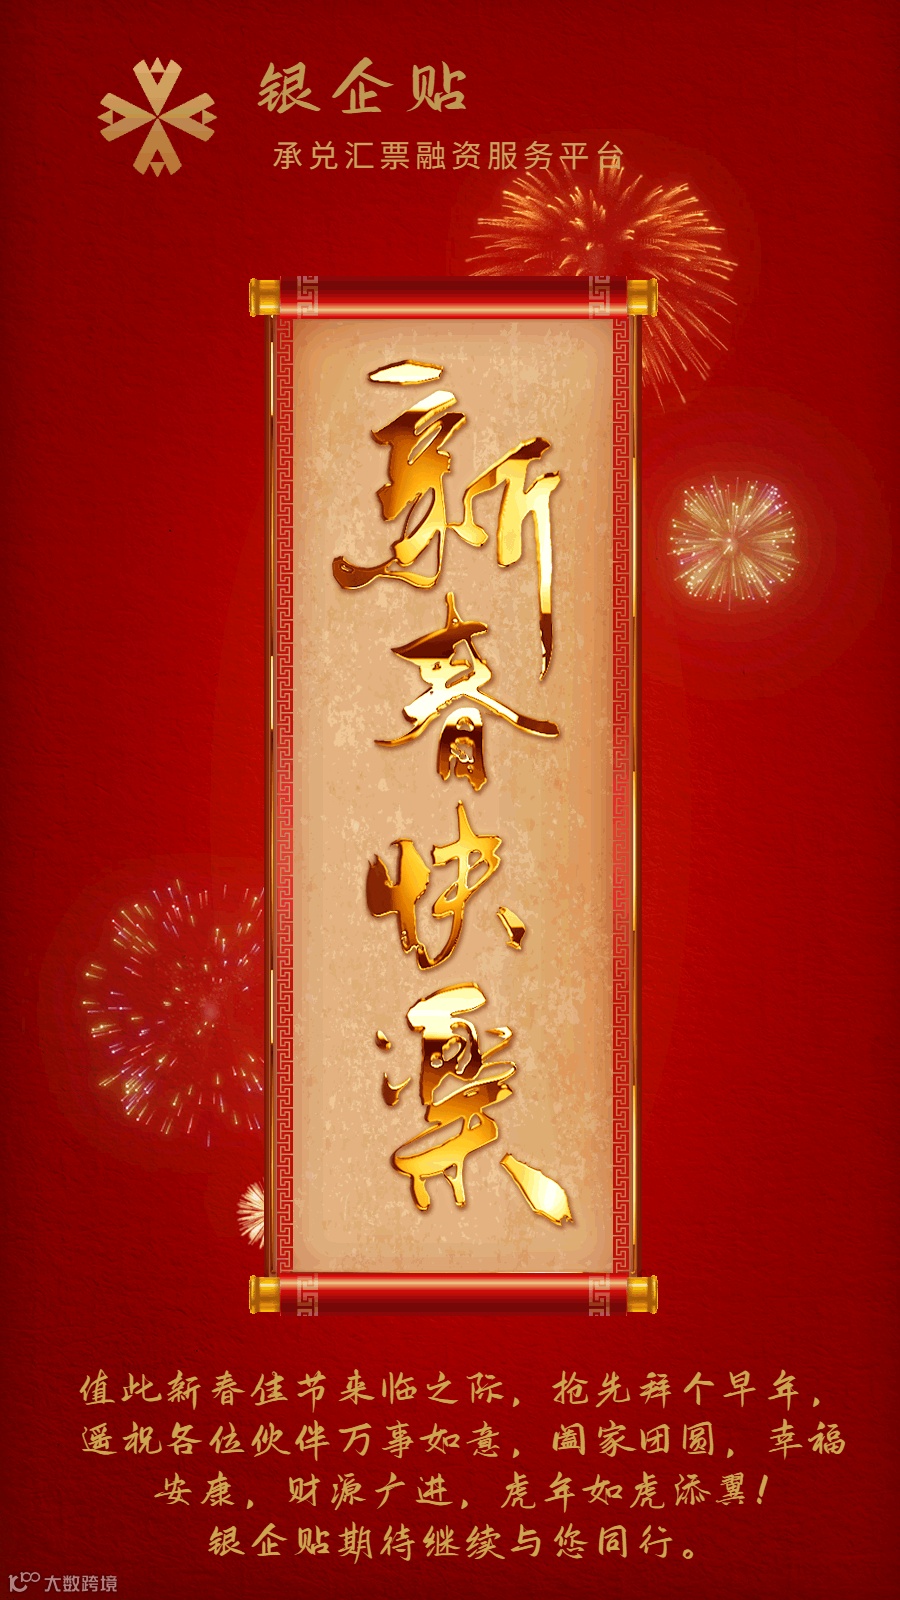 银企贴
承兑汇票融资服务平台
新春快樂
值此新春佳节来临之际，抢先拜个早年，
遥祝各位伙伴万事如意，阖家团圆，幸福
安康，财源广进，虎年如虎添翼！
银企贴期待继续与您同行。
大数跨境